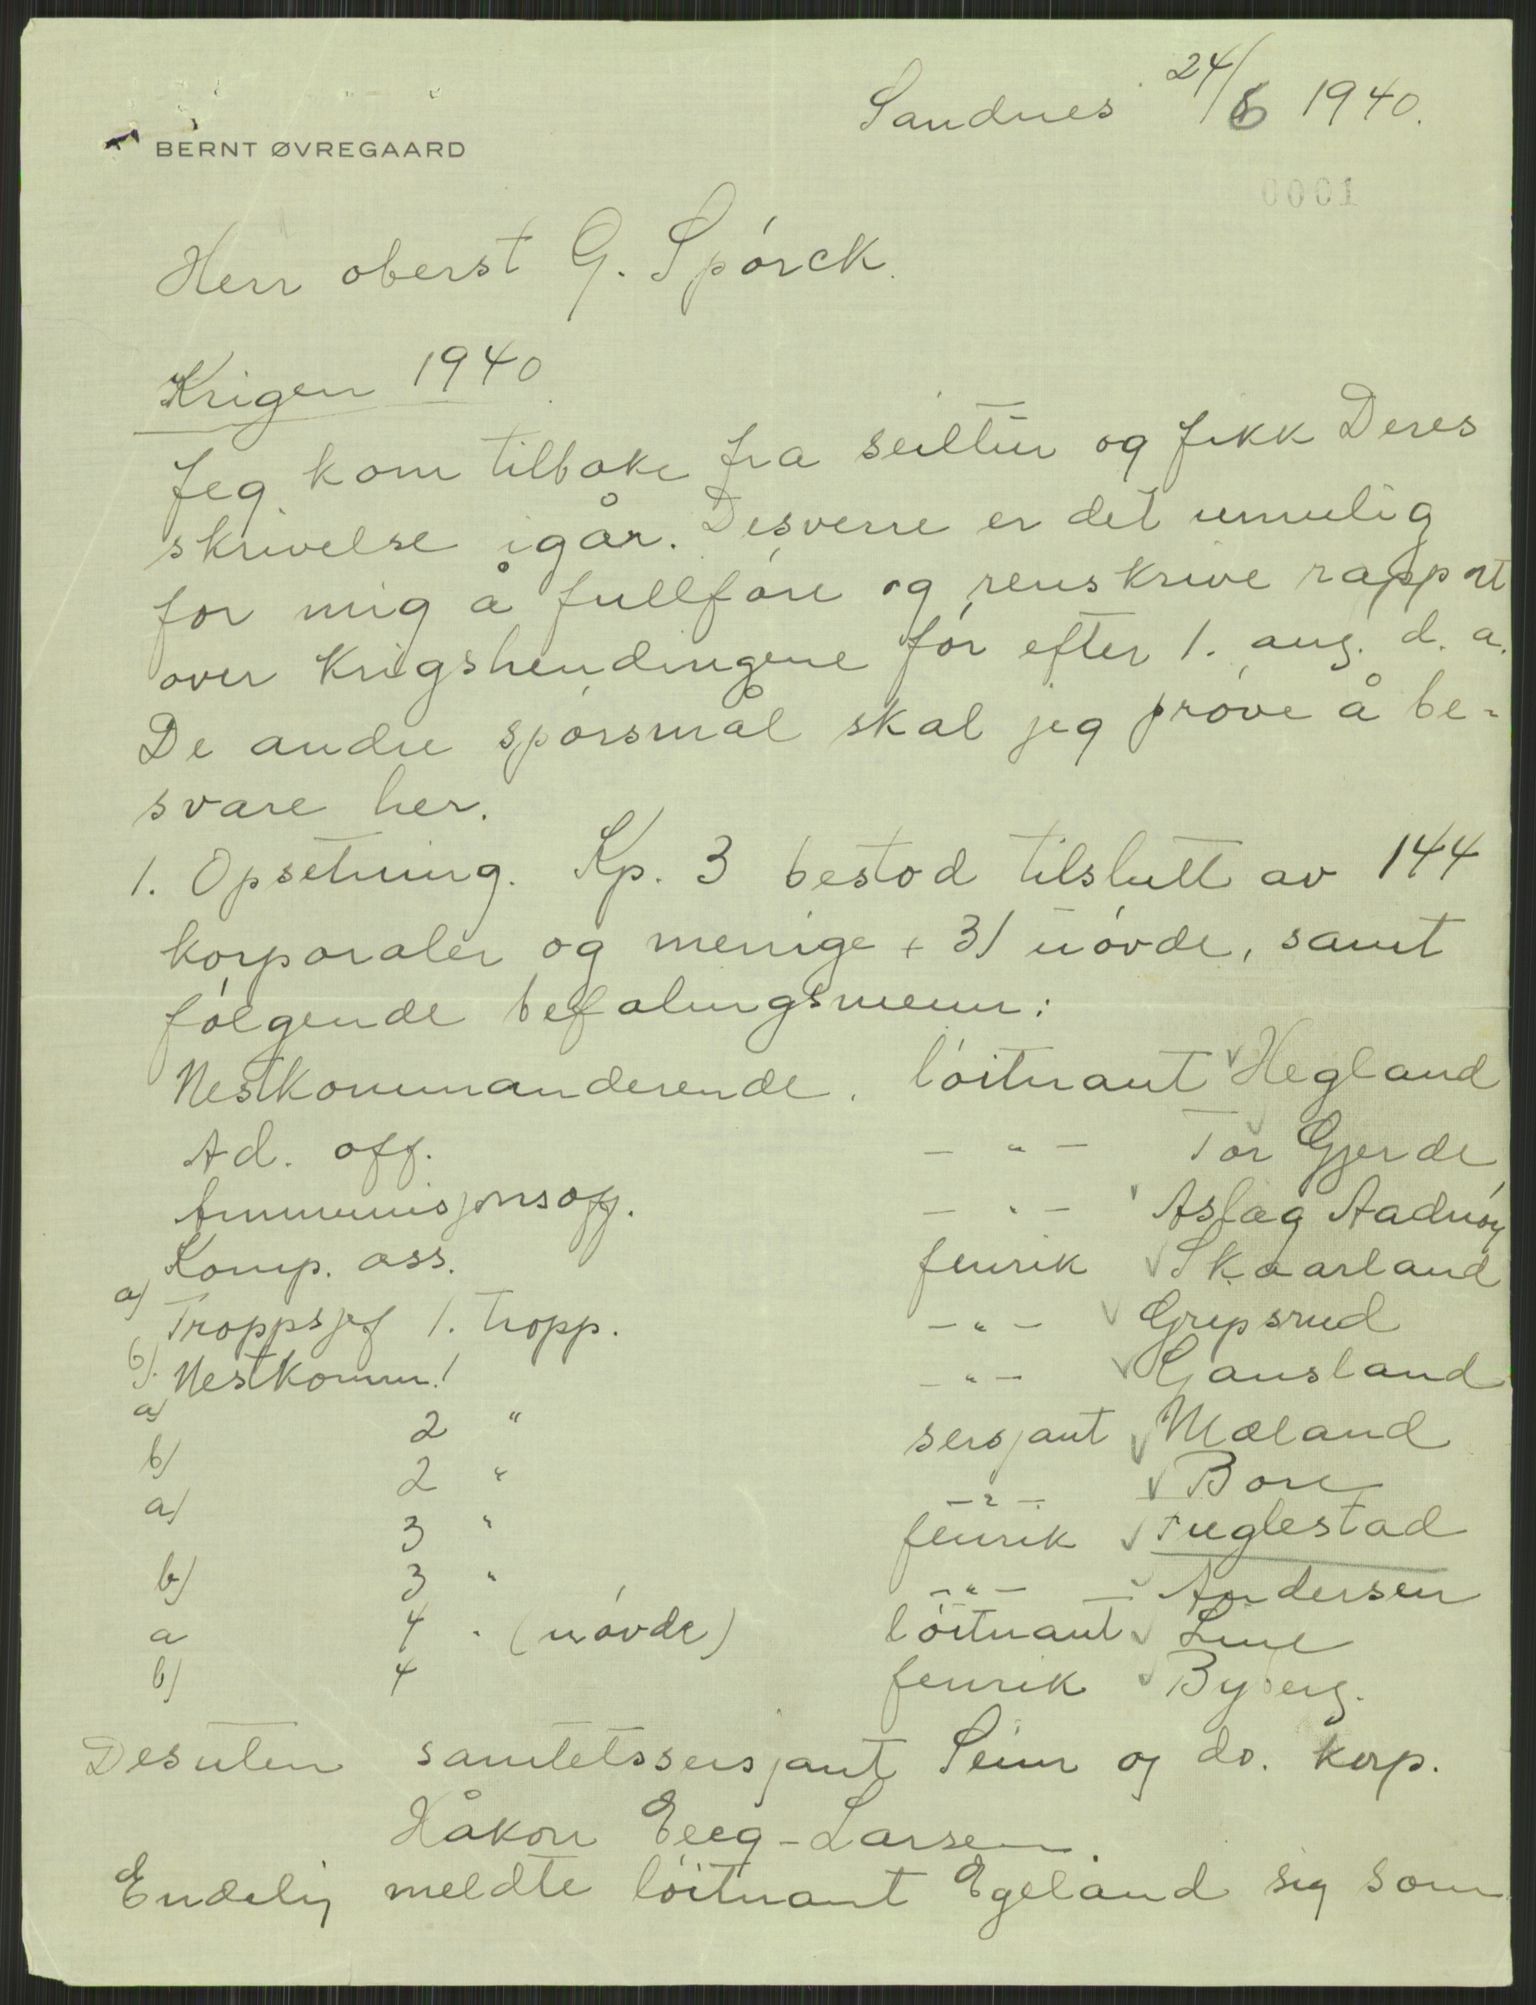 Sandnes 24/6 1940.
BERNT ØVREGAARD
0001
Herr oberst G. Spórck.
Krigen 1940.
Jeg kom tilbake fra seiltur og fikk Deres
skrivelse igår. Desverre er det umulig
for mig å fullföre og renskrive rapport
over krigshendingene fór efter 1. aug. d. a.
De andre spórsmål skal jeg próve å be-
svare her.
1. Opsetning. Kp. 3 bestod tilslutt av 144
korporaler og menige + 31 uóvde, samt
fólgende befalingsmenn:
Nestkommanderende. lóitnant Hegland
Ad. off. — " — Tor Gjerde
Ammunisjonsoff. — " — Aslag Aadnóy
Komp. ass. fenrik Skaarland
a) Troppsjef 1. tropp. — " — Gripsrud
b). Nestkomm. 1 — " — Gausland
a) 2 " sersjant Mæland
b) 2 " — " — Bore
a) 3 " fenrik Fuglestad
b) 3 " — " — Andersen
a 4 " (uóvde) lóitnant Line
b) 4 fenrik Byberg.
Desuten sanitetssersjant Seim og do. korp.
Håkon Eeg-Larsen.
Endelig meldte lóitnant Egeland sig som